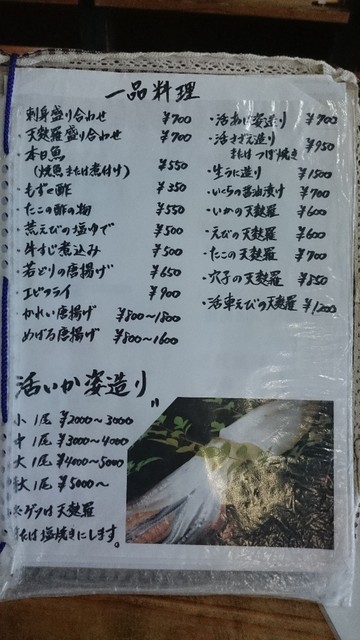 一品料理
刺身盛り合わせ ¥700
・天麩羅盛り合わせ ¥700
本日魚
(焼魚または煮付け) ¥550
・もずく酢 ¥350
たこの酢の物 ¥550
・荒えびの塩ゆで ¥500
・牛すじ煮込み ¥500
・若どりの唐揚げ ¥650
・エビフライ ¥900
かれい唐揚げ ¥800~1800
めばる唐揚げ ¥800~1600
・活あじ姿造り ¥700
・活さざえ造り
またはつぼ焼き ¥950
・生うに造り ¥1500
・いくらの醤油漬け ¥700
・いかの天麩羅 ¥600
・えびの天麩羅 ¥600
・たこの天麩羅 ¥700
・穴子の天麩羅 ¥850
・活車えびの天麩羅 ¥1200
活いか姿造り
小 1尾 ¥2000~3000
中 1尾 ¥3000~4000
大 1尾 ¥4000~5000
特大 1尾 ¥5000~
※ゲソは天麩羅
または塩焼きにします。